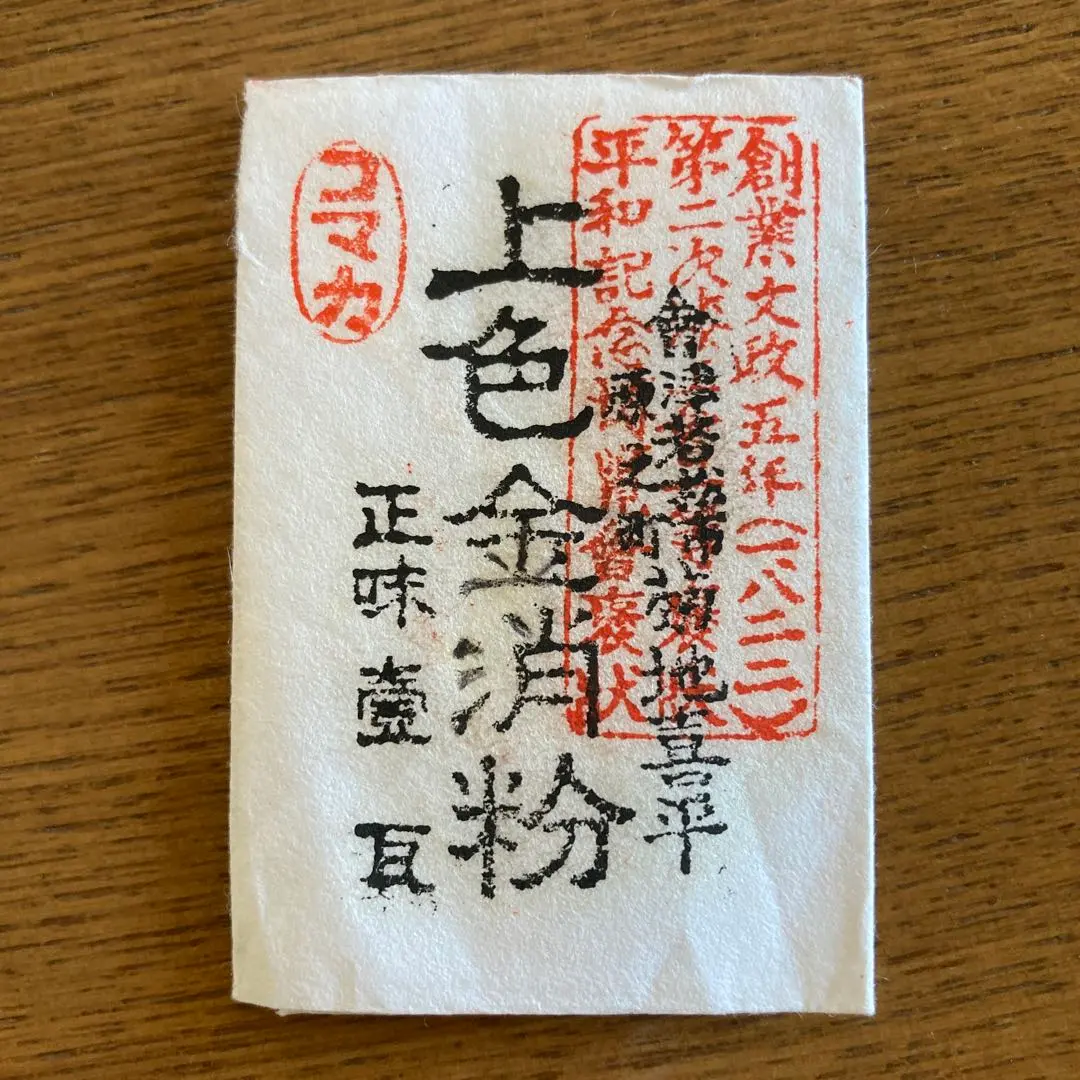 創業文政五年(一八二二)
第二次
平和記念博覧會褒状
會津若松市
原之町
地喜平
上色金消粉
正味壹瓦
コマカ